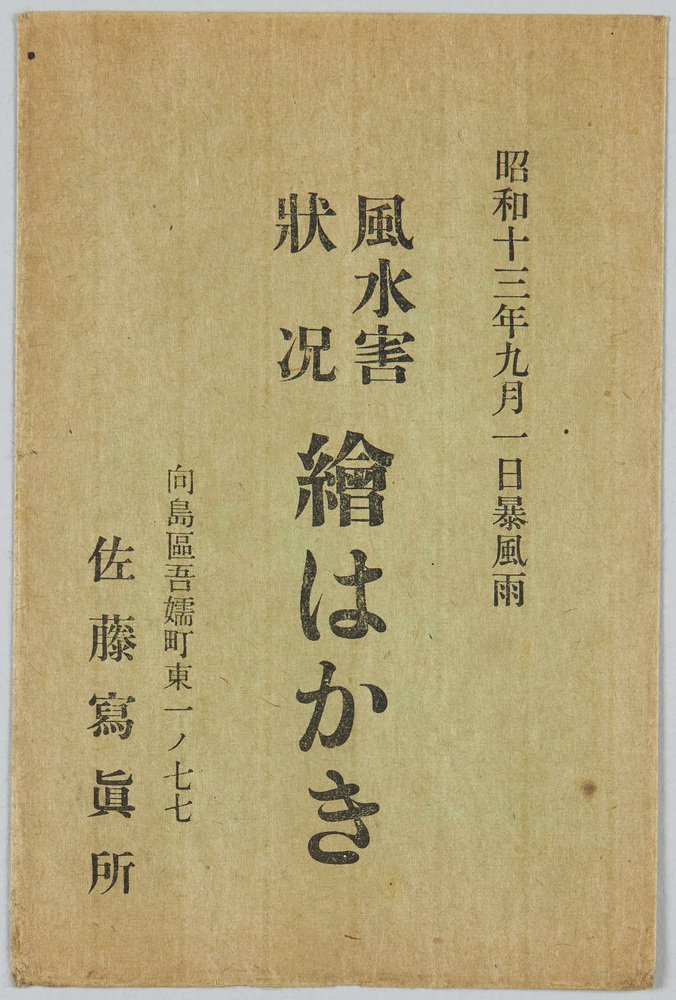 昭和十三年九月一日暴風雨
風水害
狀況
繪はかき
向島區吾嬬町東一ノ七七
佐藤寫眞所